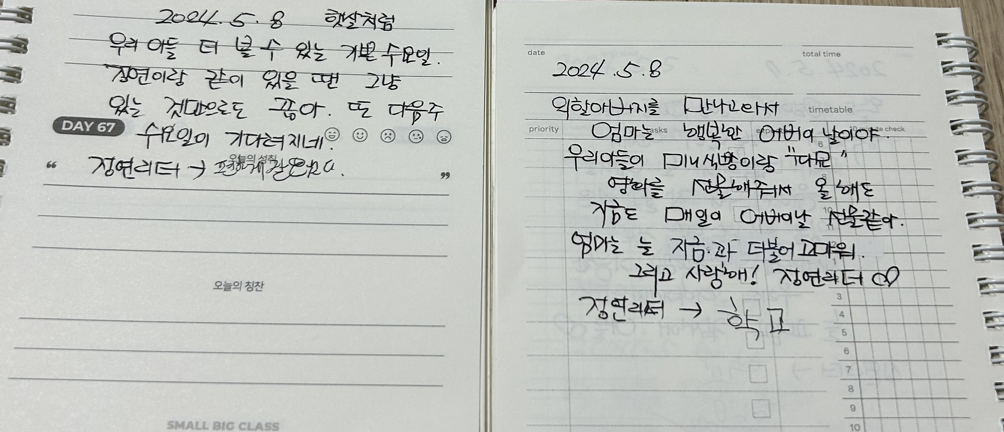 2024. 5. 8 햇살처럼
우리 아들 더 볼 수 있는 기쁜 수요일.
정연이랑 같이 있을 땐 그냥
있는 것만으로도 좋아. 또 다음주
DAY 67
수요일이 기다려지네!
“ 정연리터 → ”
오늘의 성취
오늘의 칭찬
SMALL BIG CLASS
date
total time
2024. 5. 8
외할아버지를 만나고와서
timetable
priority
tasks
check
엄마는 행복한 어버이 날이야.
우리아들이 미니식빵이랑 "대모"
영화를 선물해줘서 올해도
지금도 매일이 어버이날 선물같아.
엄마는 늘 지금과 더불어 고마워.
그리고 사랑해! 정연리터 ♡
정연리터 → 학교
3
4
5
6
7
8
9
10